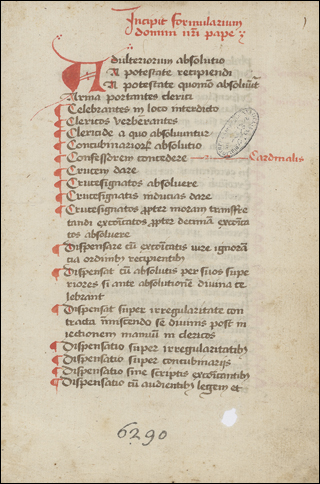 Incipit formularium
domini nri pape
1
Adulteriorum absolutio
A potestate recipiendi
A potestate quomo absoluut
Arma portantes clerici
Celebrantes in loco interdicto
Clericos verberantes
Clericide a quo absoluuntur
Concubinarior absolutio
Confessorem concedere Cardinalis
Crucem dare
Crucesignatos absoluere
Crucesignatis inducias dare
Crucesignatos ppter moram transfre
tandi excoicatos ppter decima excoica
tos absoluere
Dispensare cu excoicatis iure ignoran
cia ordinib recipientib
Dispensat cu absolutis per suos supe
riores si ante absolutione diuina ce
lebrant
Dispensat super irregularitate con
tracta miscendo se diuinis post in
iectionem manuu in clericos
Dispensatio super irregularitatib
Dispensatio super concubinariis
Dispensatio sine scriptis excoicantib
Dispensatio cu audientib legem et
6290